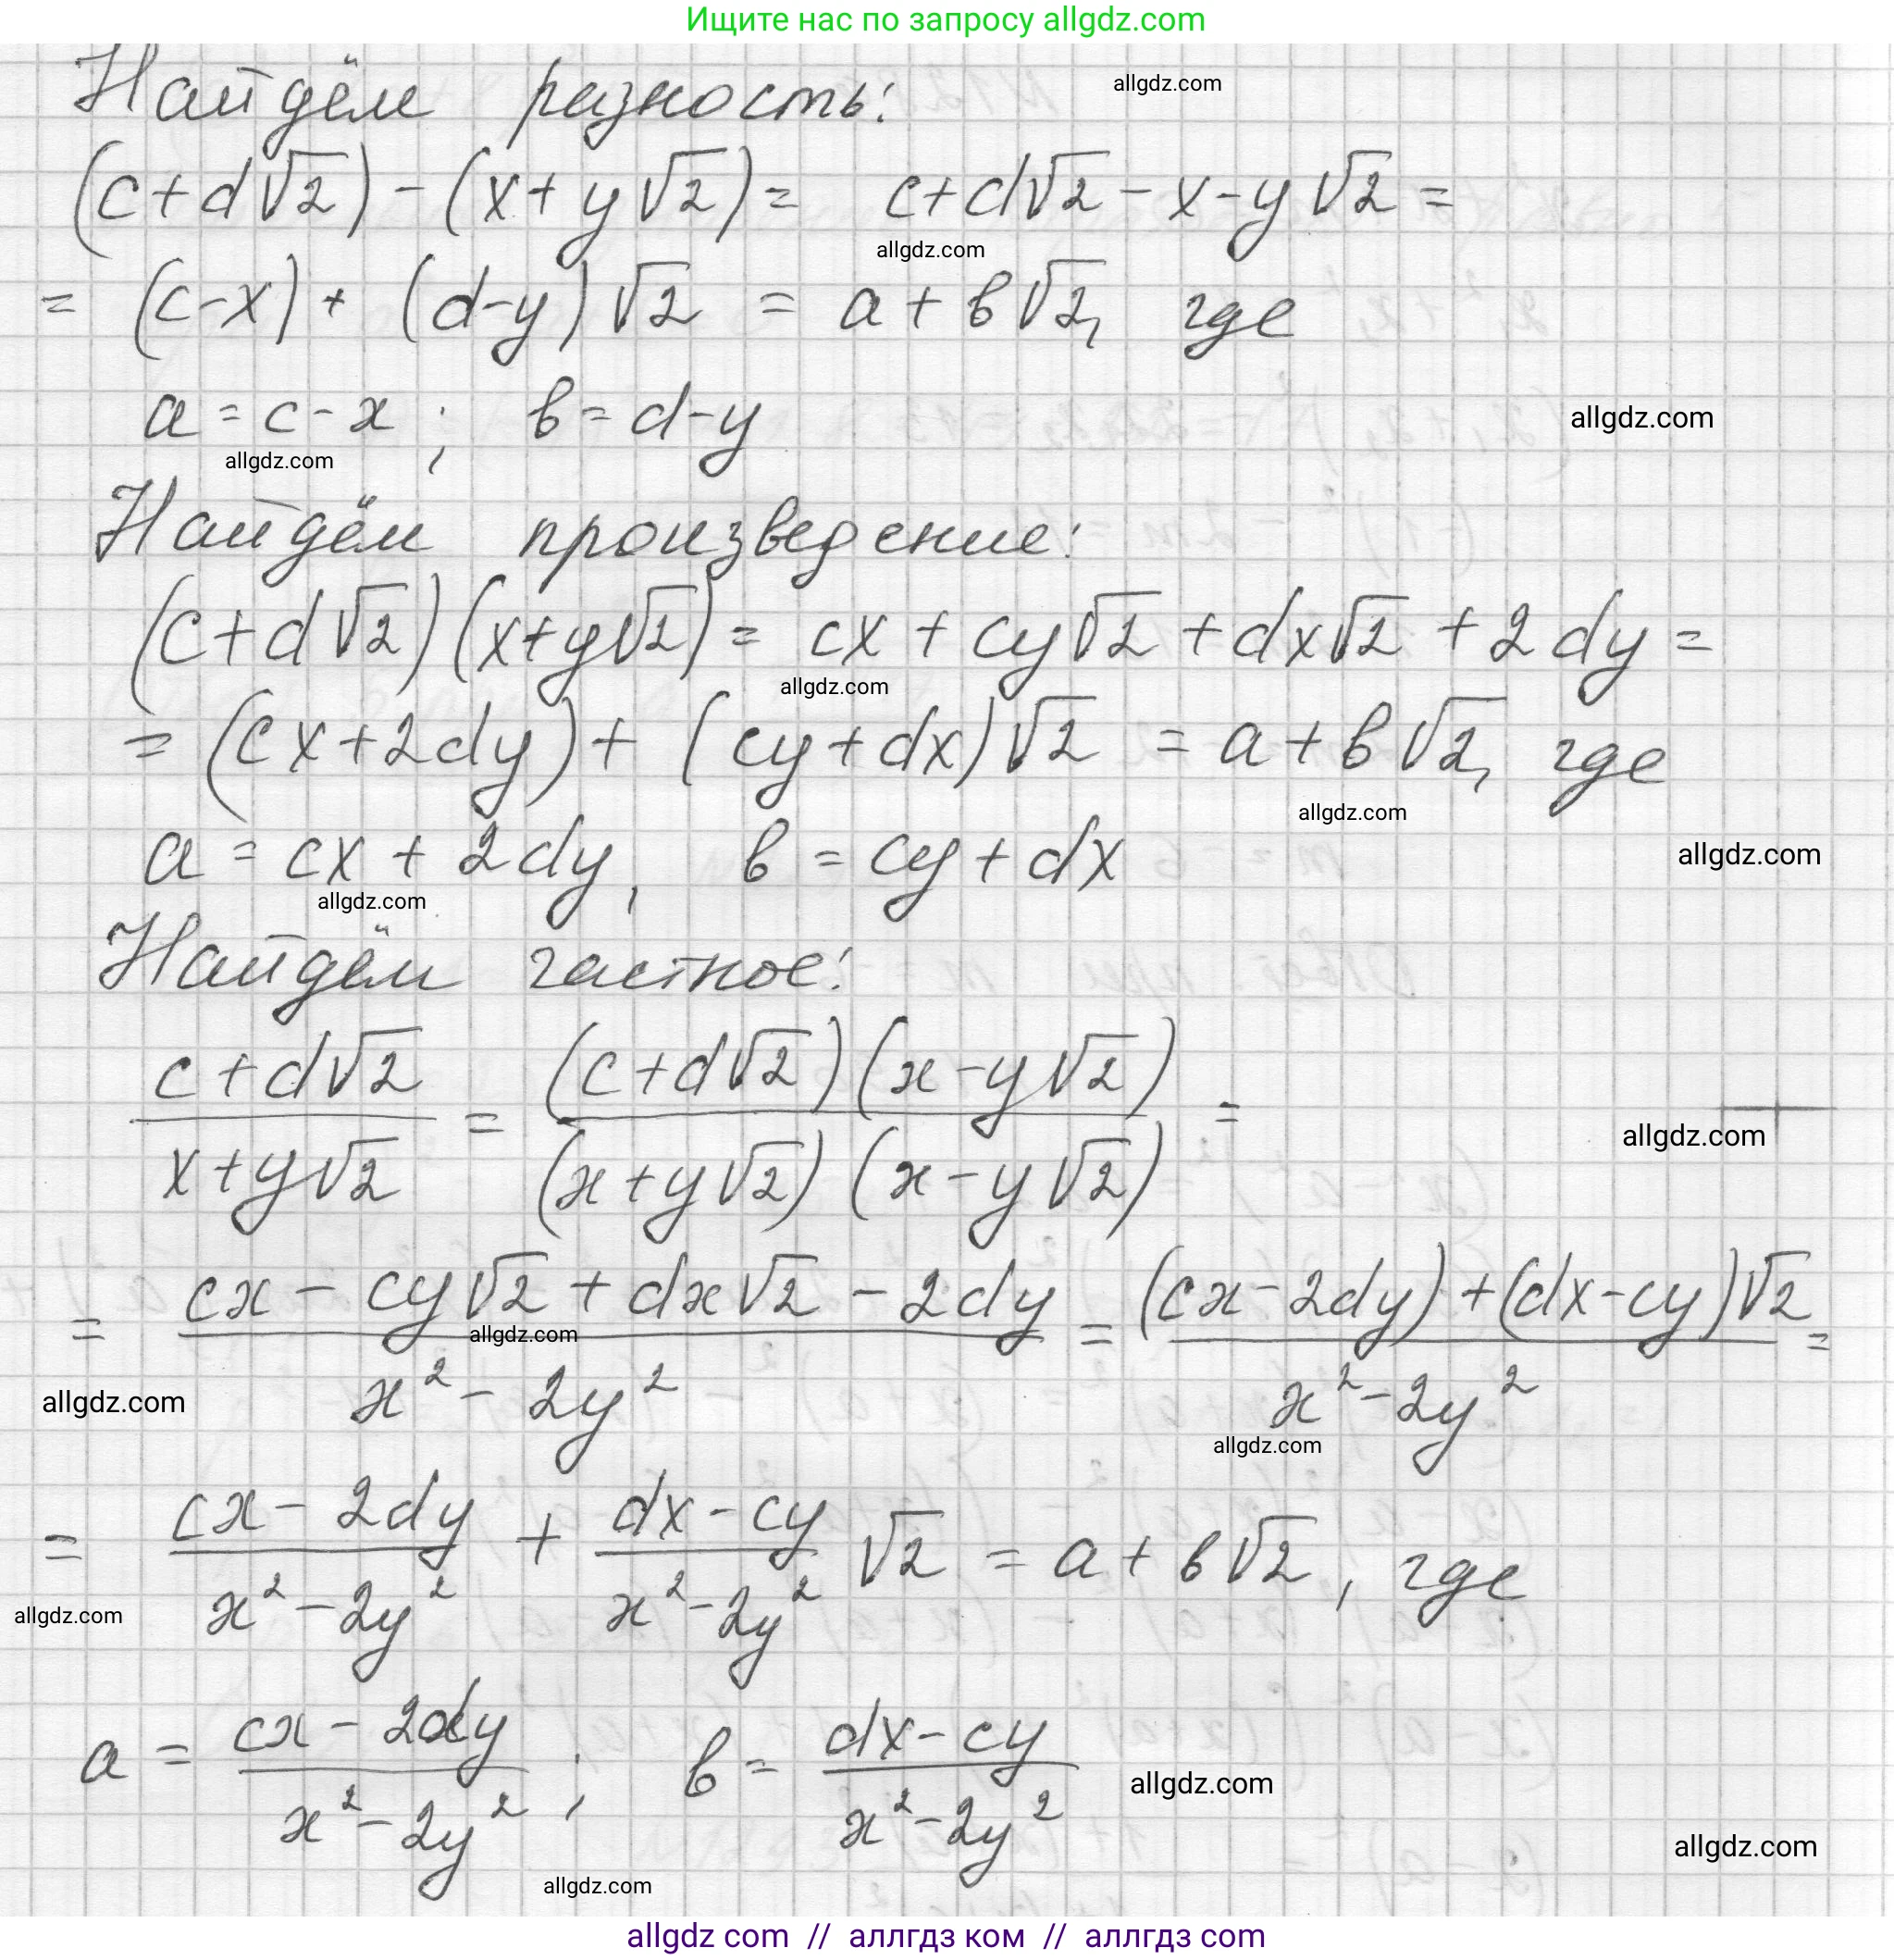 Ищите нас по запросу allgdz.com
Найдём разность:
allgdz.com
(c+d√2)-(x+y√2)= c+d√2-x-y√2=
allgdz.com
= (c-x)+ (d-y)√2 = a+в√2, где
a=c-x; в=d-y
allgdz.com
allgdz.com
Найдём произведение:
(c+d√2)(x+y√2)= cx+cy√2+dx√2+2dy=
allgdz.com
= (cx+2dy)+ (cy+dx)√2 = a+в√2, где
allgdz.com
a=cx+2dy, в=cy+dx
allgdz.com
allgdz.com
Найдём частное:
c+d√2 / x+y√2 = (c+d√2)(x-y√2) / (x+y√2)(x-y√2) =
allgdz.com
= cx-cy√2+dx√2-2dy / x²-2y² = (cx-2dy)+(dx-cy)√2 / x²-2y² =
allgdz.com
allgdz.com
allgdz.com
= cx-2dy / x²-2y² + dx-cy / x²-2y² √2 = a+в√2, где
allgdz.com
a = cx-2dy / x²-2y² ; в= dx-cy / x²-2y²
allgdz.com
allgdz.com
allgdz.com
allgdz com // аллгдз ком // аллгдз com